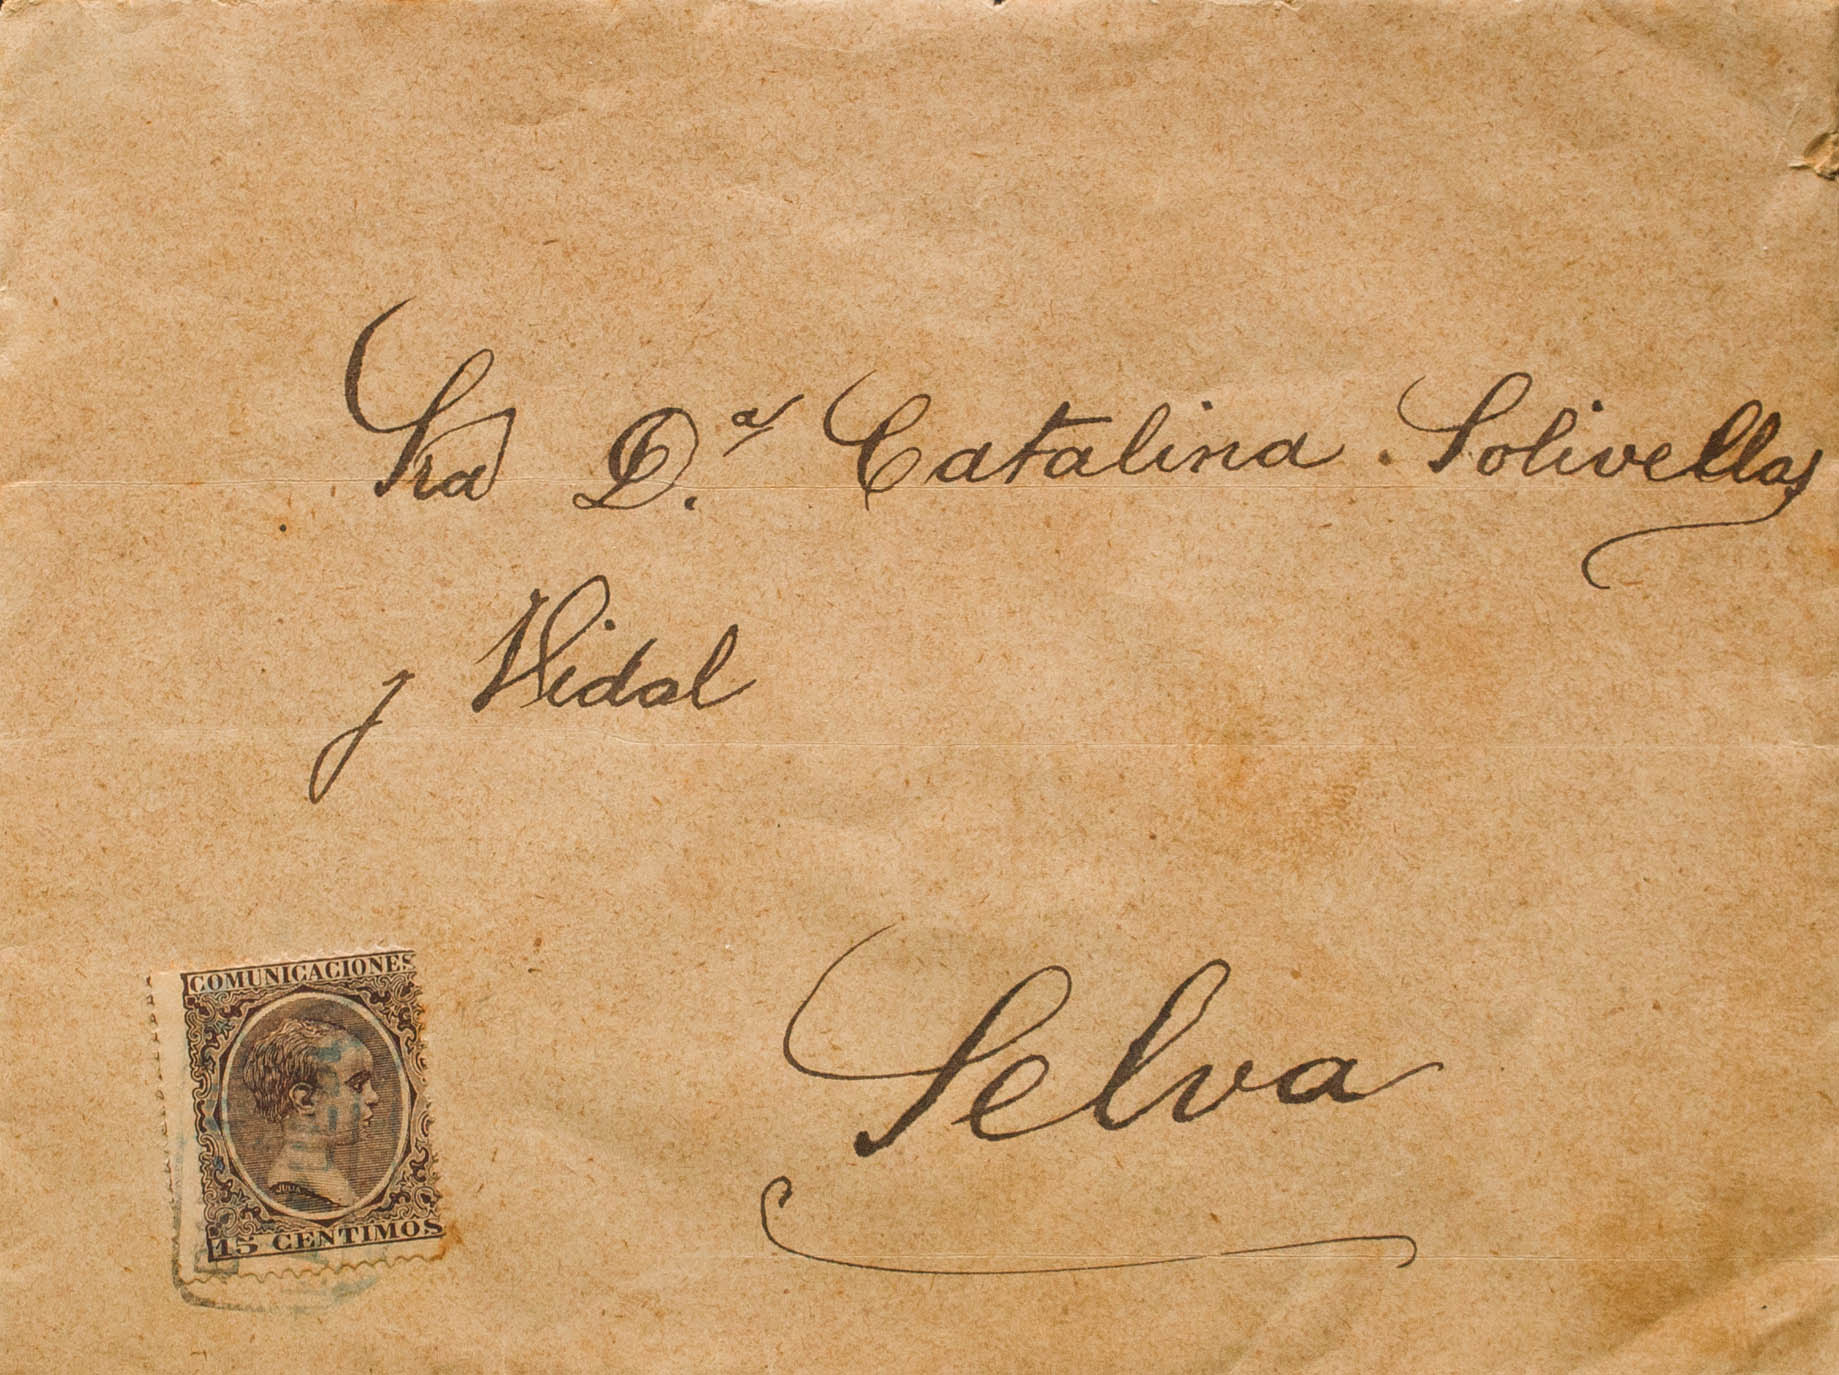 Sra D.ª Catalina Solivellas
y Vidal
Selva
COMUNICACIONES
JULIA
15 CENTIMOS